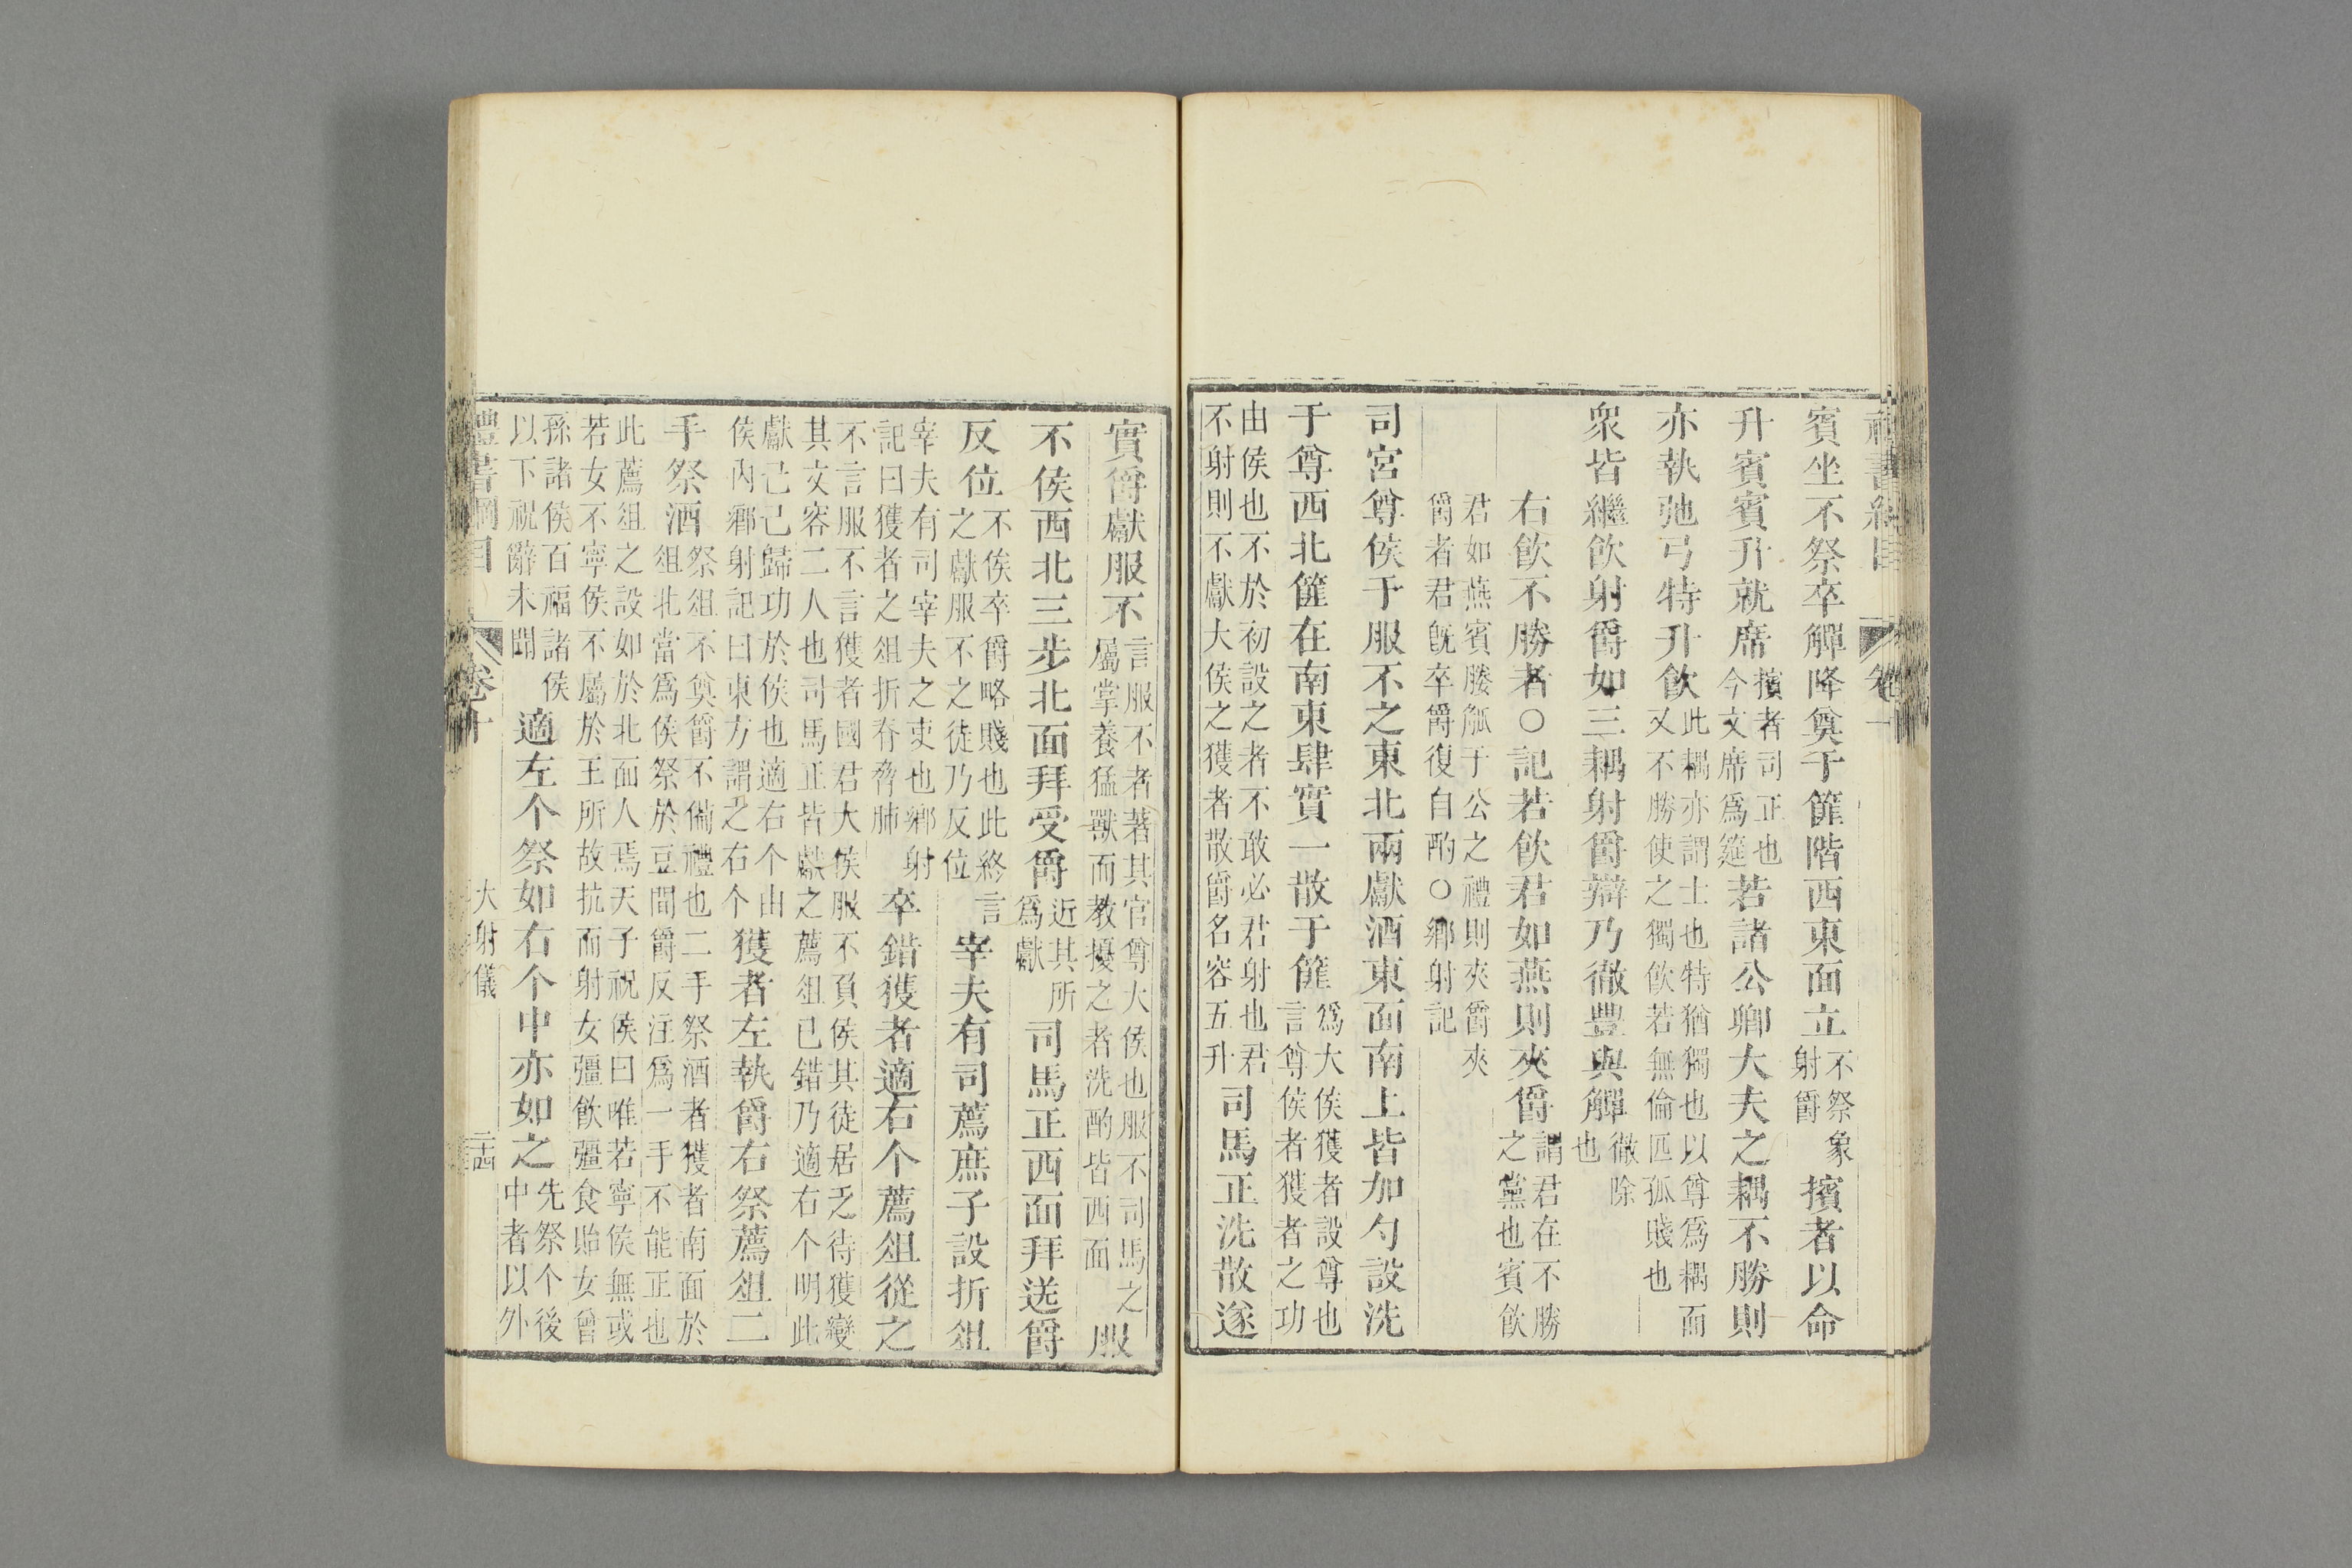 賓坐不祭卒觶降奠于篚階西東面立不祭象射爵擯者以命
升賓賓升就席擯者司正也今文席爲筵若諸公卿大夫之耦不勝則
亦執弛弓特升飮此耦亦謂士也特猶獨也以尊爲耦而又不勝使之獨飮若無倫匹孤賤也
衆皆繼飮射爵如三耦射爵辯乃徹豐與觶徹除也
右飮不勝者○記若飮君如燕則夾爵謂君在不勝之黨也賓飮
君如燕賓媵觚于公之禮則夾爵夾爵者君旣卒爵復自酌○鄉射記
司宮尊侯于服不之東北兩獻酒東面南上皆加勺設洗
于尊西北篚在南東肆實一散于篚爲大侯獲者設尊也言尊侯者獲者之功
由侯也不於初設之者不敢必君射也君不射則不獻大侯之獲者散爵名容五升司馬正洗散遂
實爵獻服不言服不者著其官尊大侯也服不司馬之屬掌養猛獸而教擾之者洗酌皆西面服
不侯西北三步北面拜受爵近其所爲獻司馬正西面拜送爵
反位不俟卒爵略賤也此終言之獻服不之徒乃反位宰夫有司薦庶子設折俎
宰夫有司宰夫之吏也鄉射記曰獲者之俎折脊脅肺卒錯獲者適右个薦俎從之
不言服不言獲者國君大侯服不負侯其徒居乏待獲變其文容二人也司馬正皆獻之薦俎已錯乃適右个明此
獻己己歸功於侯也適右个由侯內鄉射記曰東方謂之右个獲者左執爵右祭薦俎二
手祭酒祭俎不奠爵不備禮也二手祭酒者獲者南面於俎北當爲侯祭於豆間爵反注爲一手不能正也
此薦俎之設如於北面人焉天子祝侯曰唯若寧侯無或若女不寧侯不屬於王所故抗而射女彊飮彊食貽女曾
孫諸侯百福諸侯以下祝辭未聞適左个祭如右个中亦如之先祭个後中者以外
禮書綱目 卷十 大射儀 二十四